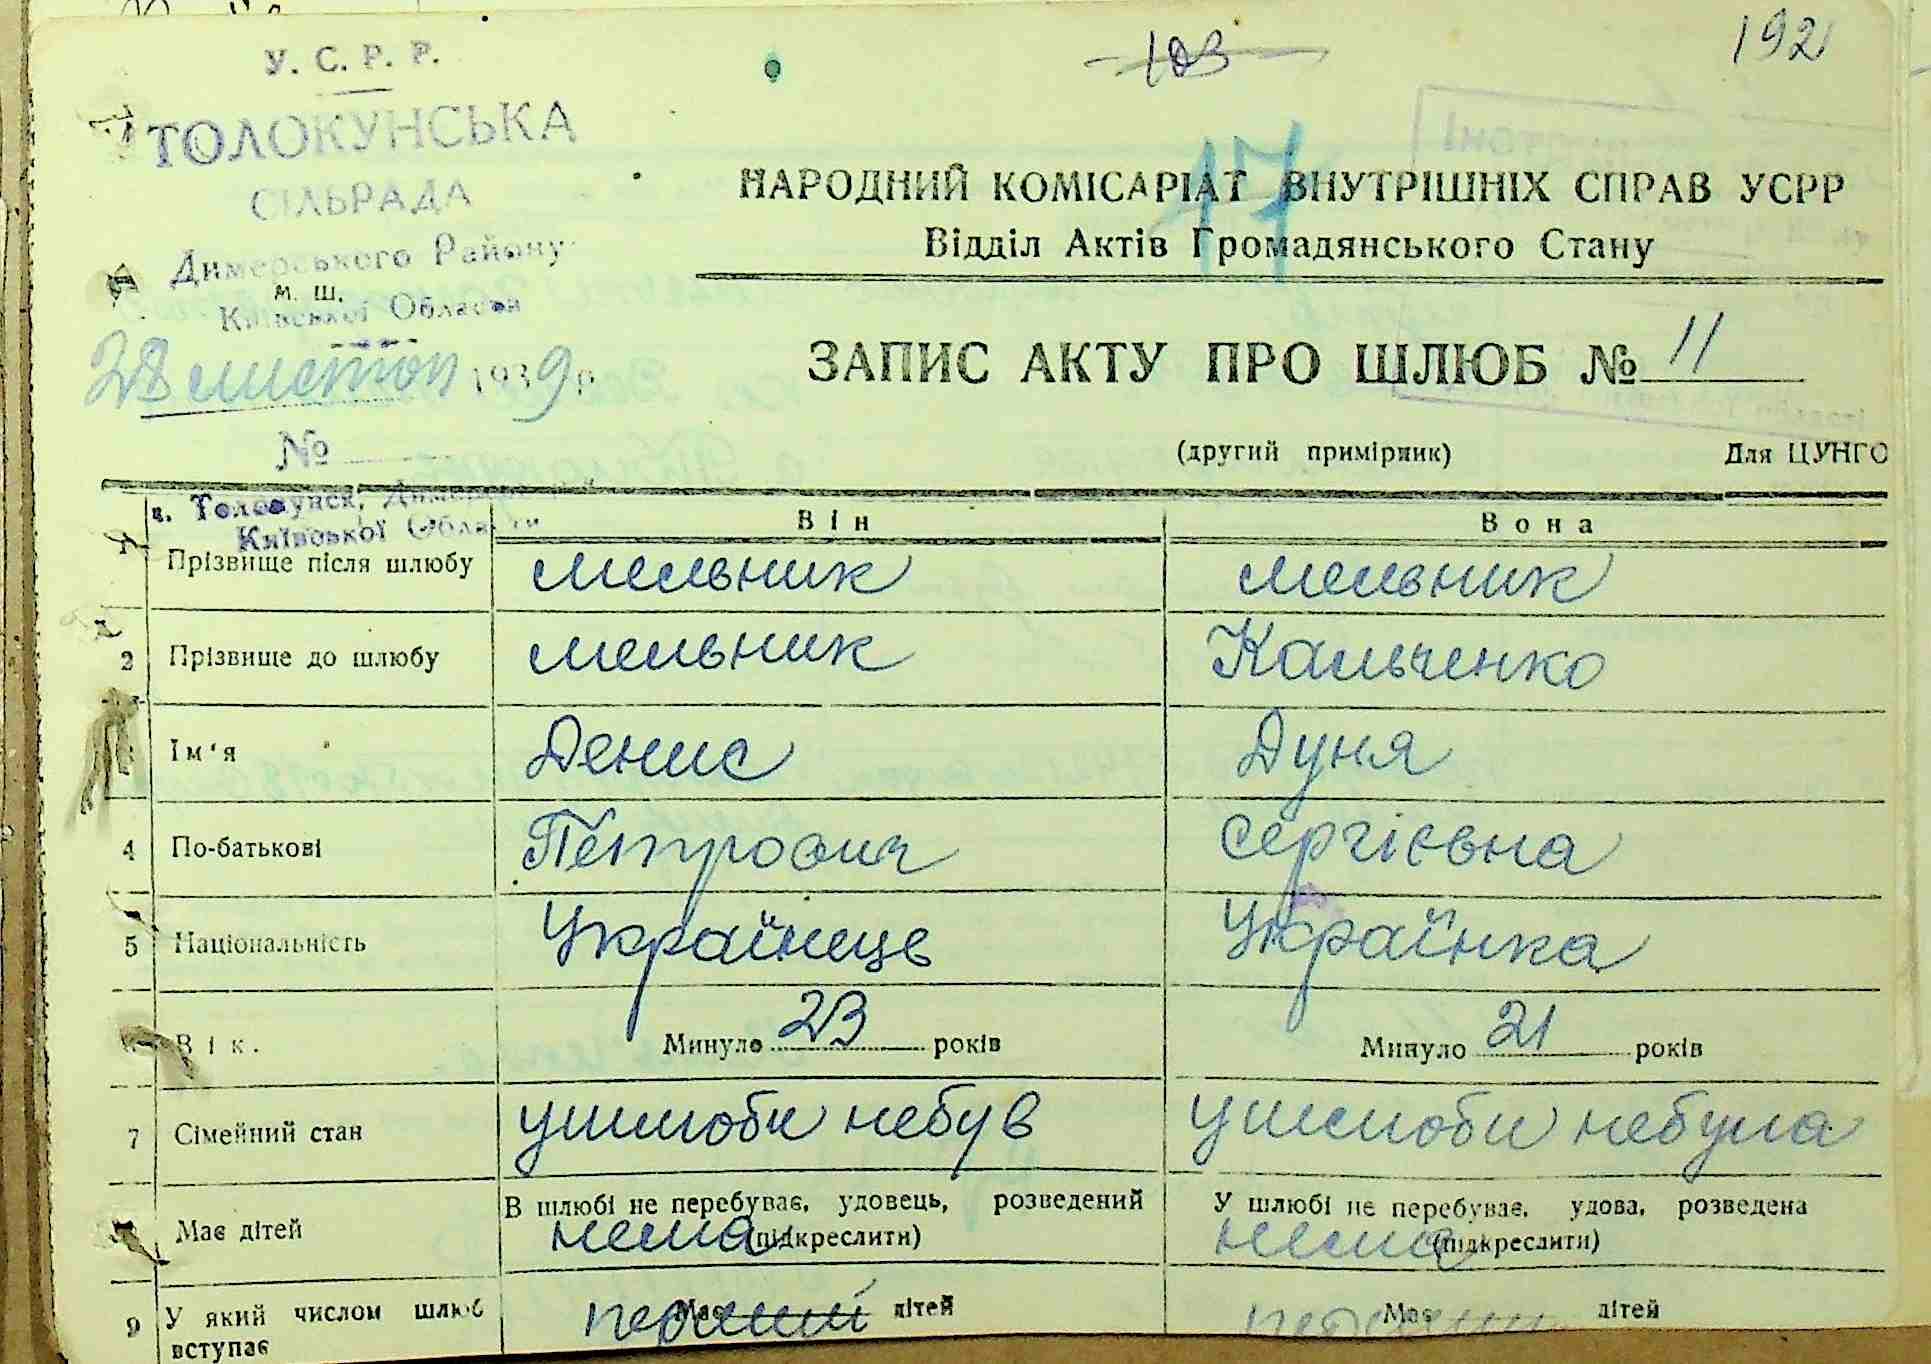 У. С. Р. Р.
ТОЛОКУНСЬКА
СІЛЬРАДА
Димерського Району
м. ш.
Київської Области
28 листоп 1939 р.
№
с. Толокунск, Димерського
Київської Области
103
192
17
НАРОДНИЙ КОМІСАРІАТ ВНУТРІШНІХ СПРАВ УСРР
Відділ Актів Громадянського Стану
ЗАПИС АКТУ ПРО ШЛЮБ № 11
(другий примірник) Для ЦУНГО
Він Вона
1 Прізвище після шлюбу мельник мельник
2 Прізвище до шлюбу мельник Кальченко
Ім'я Денис Дуня
4 По-батькові Петрович Сергієвна
5 Національність Українець Українка
Вік. Минуло 23 років Минуло 21 років
7 Сімейний стан ушлюби небув ушлюби небула
В шлюбі не перебуває, удовець, розведений У шлюбі не перебуває, удова, розведена
Має дітей нема (підкреслити) нема (підкреслити)
9 У який числом шлюб перший Має дітей Має дітей
вступає